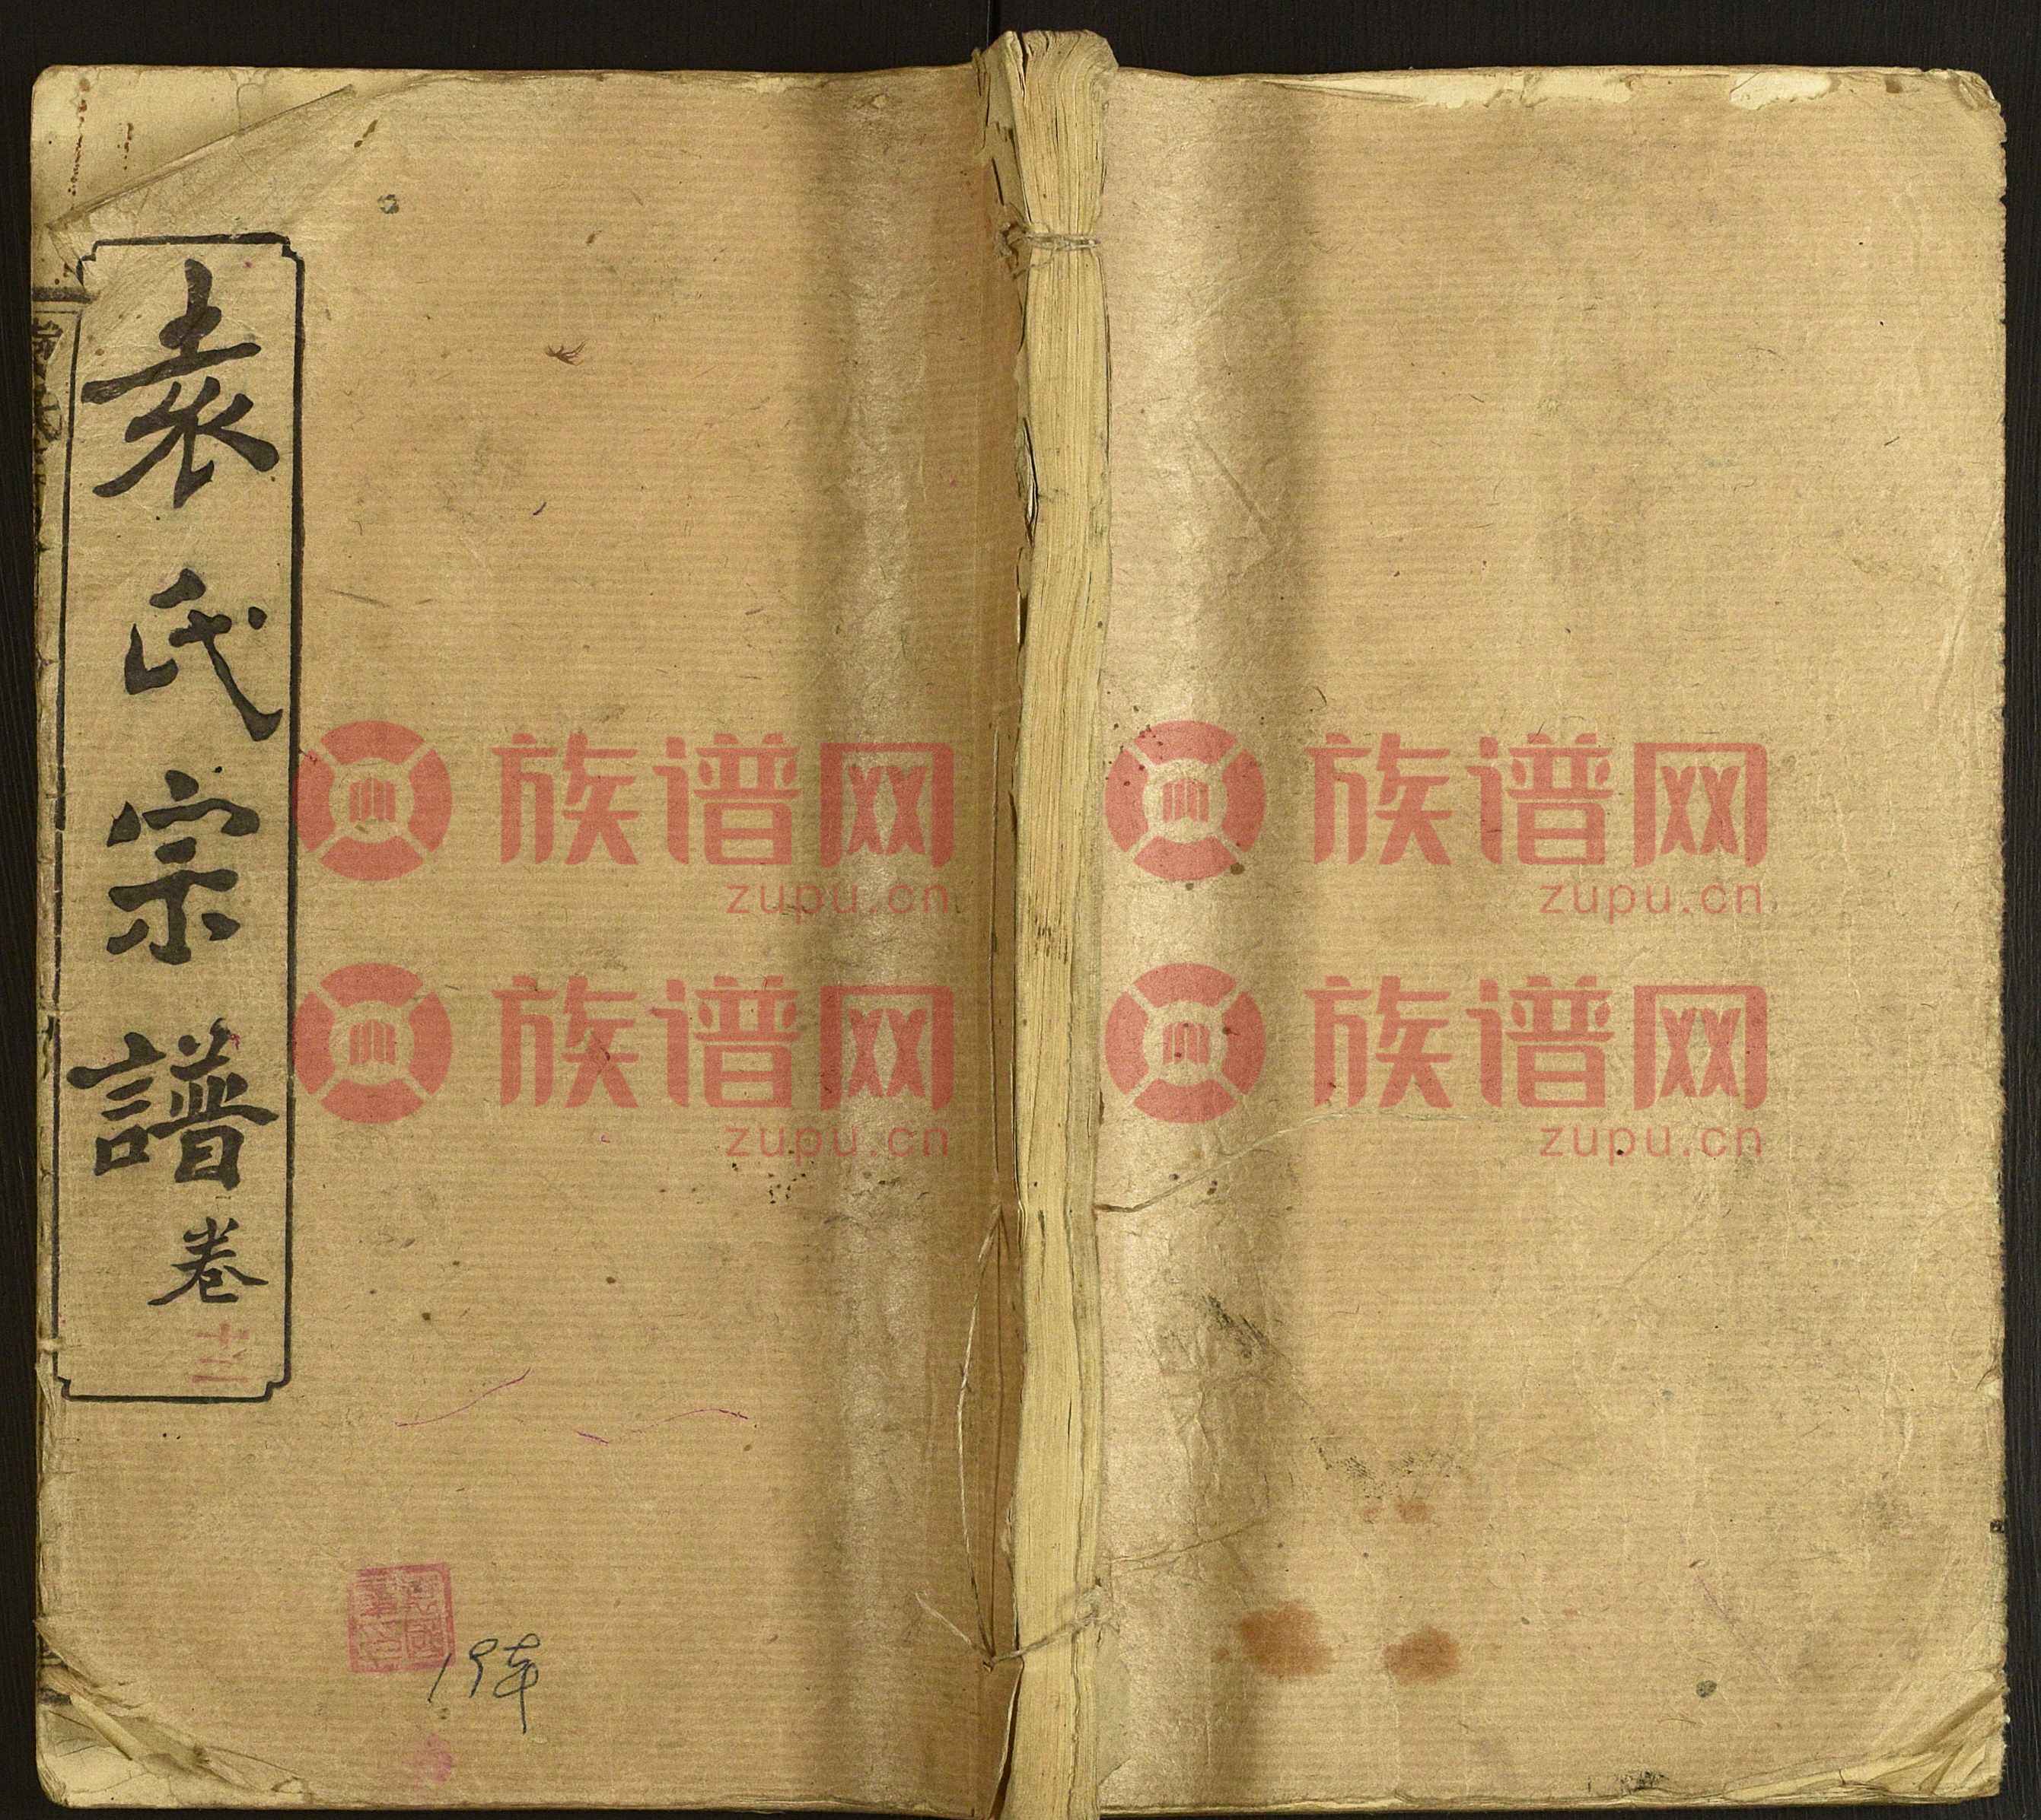 袁氏宗譜卷十三
19本
族谱网
zupu.cn
族谱网
zupu.cn
族谱网
zupu.cn
族谱网
zupu.cn